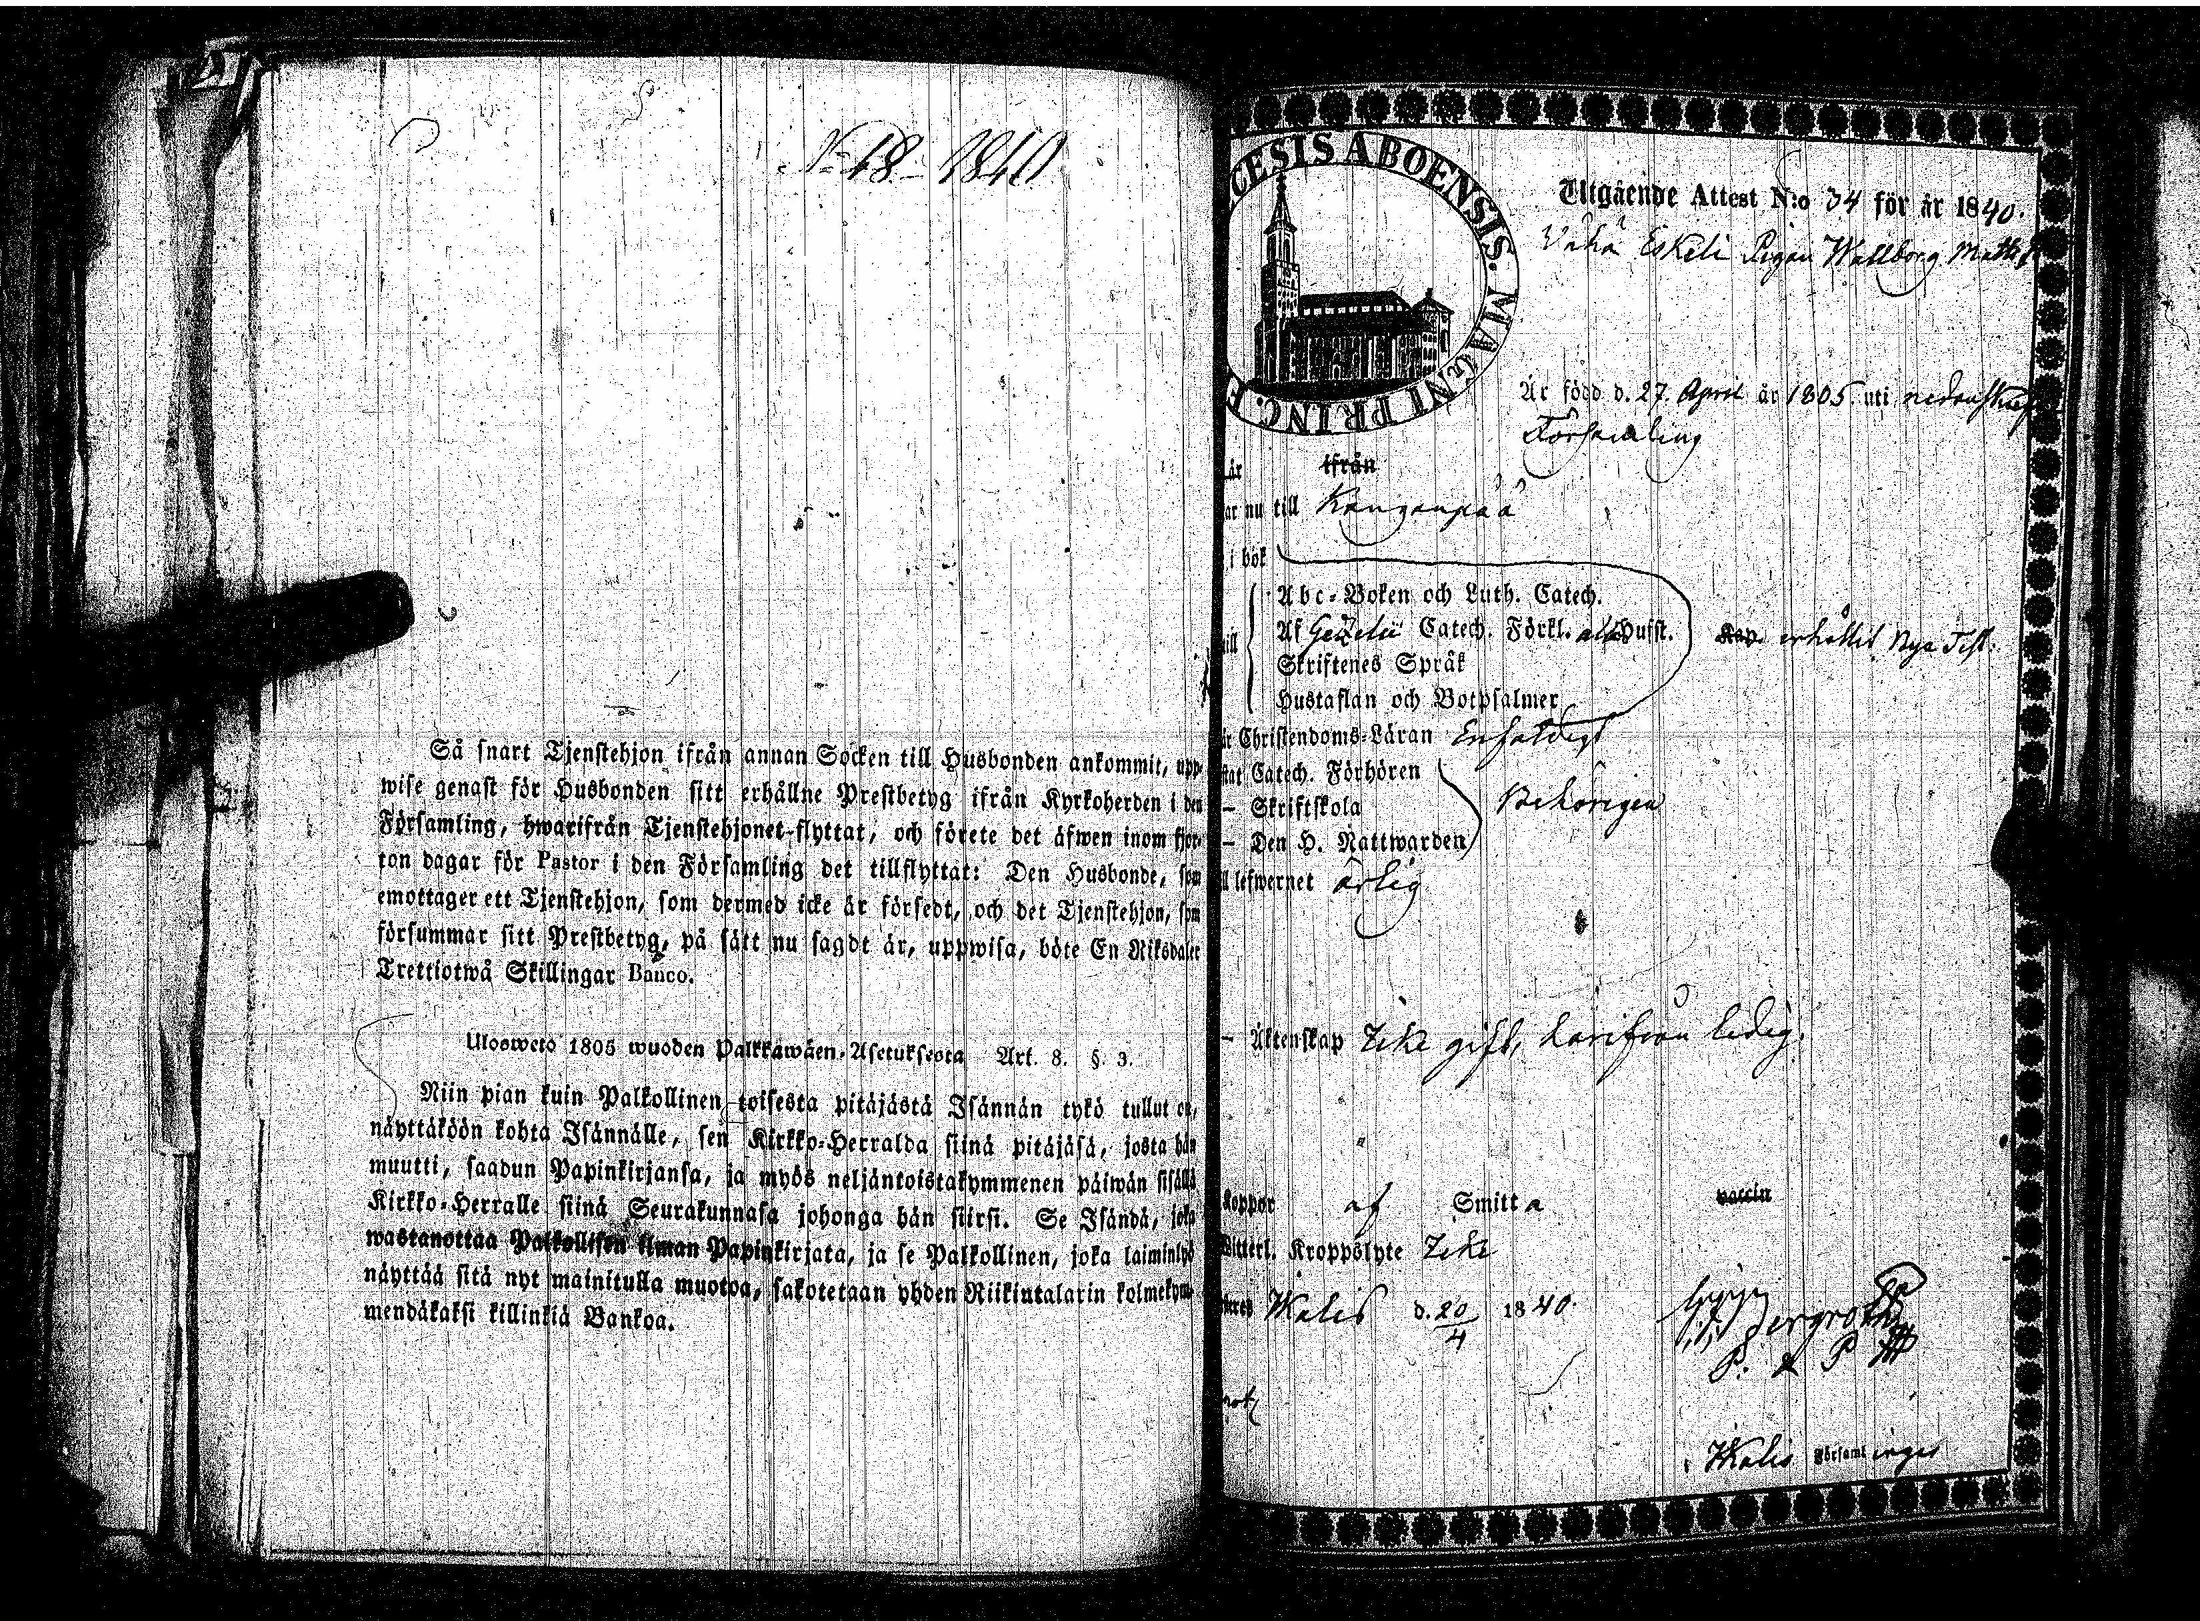 N:o 18 - 1840
Så snart Tjenstehjon ifrån annan Socken till Husbonden ankommit, upp-
wise genast för Husbonden sitt erhållne Prestbetyg ifrån Kyrkoherden i den
Församling, hwarifrån Tjenstehjonet flyttat, och förete det äfwen inom fjor-
ton dagar för Pastor i den Församling det tillflyttat: Den Husbonde, som
emottager ett Tjenstehjon, som dermed icke är försedt, och det Tjenstehjon, som
försummar sitt Prestbetyg, på sätt nu sagdt är, uppwisa, böte En Riksdaler
Trettiotwå Skillingar Banco.
Ulosweto 1805 wuoden Palkkawäen-Asetuksesta Art. 8. §. 3.
Niin pian kuin Palkollinen toisesta pitäjästä Isännän tykö tullut on,
näyttäköön kohta Isännälle, sen Kirkko-Herralda siinä pitäjäsä, josta hän
muutti, saadun Papinkirjansa, ja myös neljäntoistakymmenen päiwän sisällä
Kirkko-Herralle siinä Seurakunnasa johonga hän siirsi. Se Isändä, joka
wastanottaa Palkollisen ilman Papinkirjata, ja se Palkollinen, joka laiminlyö
näyttää sitä nyt mainitulla muotoa, sakotetaan yhden Riikintalarin kolmekym-
mendäkaksi killinkiä Bankoa.
CESIS ABOENSIS. MAGNI PRINC. F
Utgående Attest N:o 34 för år 1840.
Vähä Eskeli Pigan Wallborg Matts
Är född d. 27. April år 1805 uti
Församling
år ifrån
ar nu till Kanganpää
i bok
Abc-Boken och Luth. Catech.
Af Gezelii Catech. Förkl. Hufst.
till Skriftenes Språk
Hustaflan och Botpsalmer
erhållit Nya Test.
Christendoms-Läran Enfaldigt
Catech. Förhören
– Skriftskola
– Den H. Nattwarden
Behörigen
lefwernet ärlig
– Äktenskap Icke gift, härifrån ledig.
Koppor af Smitta vaccin
Witterl. Kroppslyte Icke
d. 20/4 1840.
P. & P
Församlinges